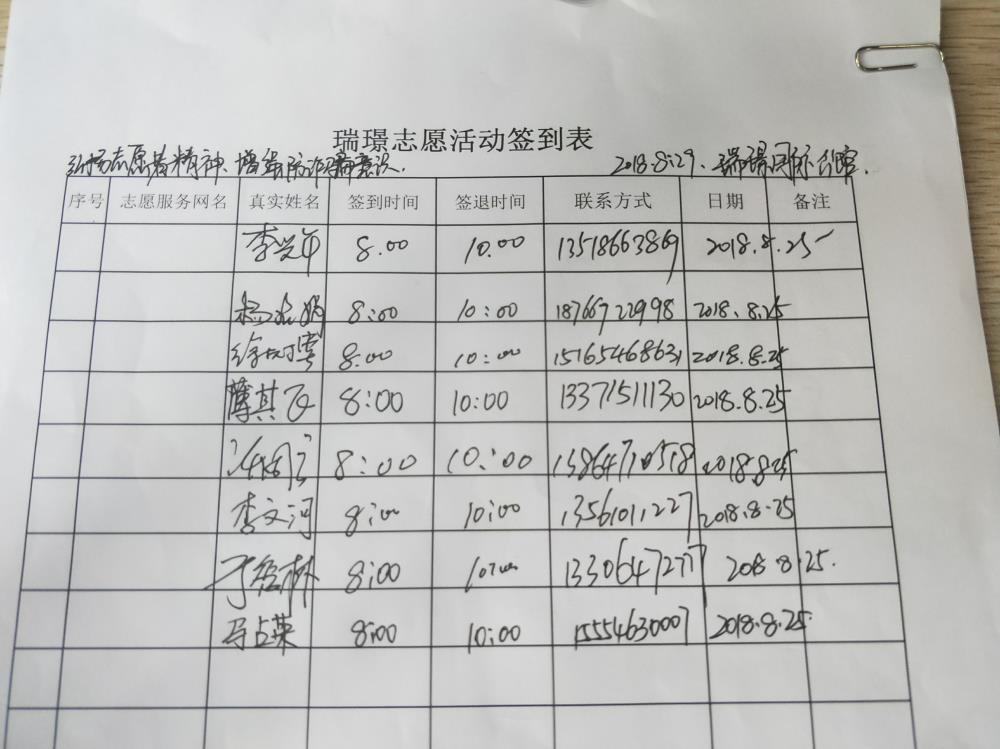 瑞璟志愿活动签到表
弘扬志愿者精神、增强防诈骗意识、 2018.8.29、瑞璟国际公馆.
序号 志愿服务网名 真实姓名 签到时间 签退时间 联系方式 日期 备注
李兴年 8.00 10.00 13518663869 2018.8.25
8:00 10:00 18766722998 2018.8.25
8.00 10:00 15165468631 2018.8.25
薄其飞 8:00 10:00 13371511130 2018.8.25
8:00 10:00 13864710518 2018.8.25
李文河 8:00 10:00 13561011227 2018.8.25
8:00 13306472777 2018.8.25.
马占荣 8:00 10:00 15554630007 2018.8.25